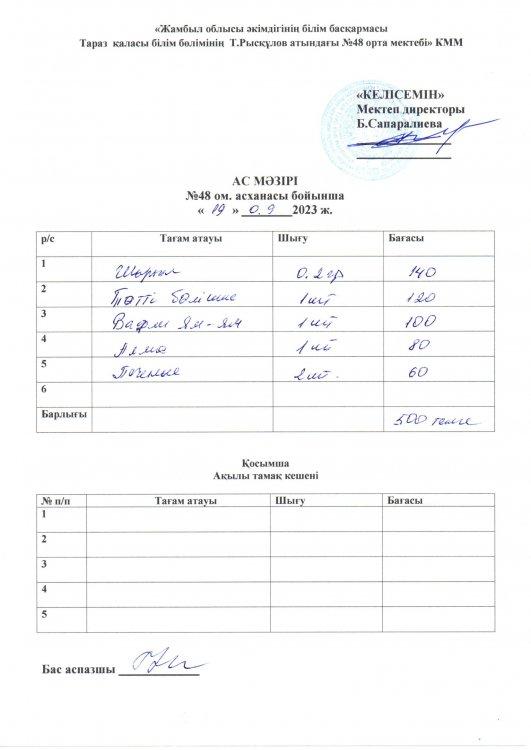 «Жамбыл облысы әкімдігінің білім басқармасы
Тараз қаласы білім бөлімінің Т.Рысқұлов атындағы №48 орта мектебі» КММ
«КЕЛІСЕМІН»
Мектеп директоры
Б.Сапаралиева
АС МӘЗІРІ
№48 ом. асханасы бойынша
« 19 » 0.9 2023 ж.
р/с Тағам атауы Шығу Бағасы
1 0.2 гр 140
2 Тәтті бөлішке 1 шт 120
3 Вафли Ям-Ям 1 шт 100
4 Алма 1 шт 80
5 Печенье 2 шт. 60
6
Барлығы 500 тенге
Қосымша
Ақылы тамақ кешені
№ п/п Тағам атауы Шығу Бағасы
1
2
3
4
5
Бас аспазшы